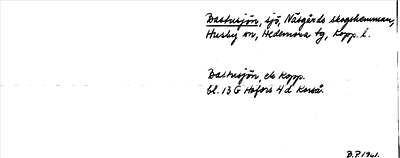 Bastusjön, sjö, Näsgårds skogshemman,
Husby sn, Hedemora tg, Kopp. l.
Bastusjön, ek Kopp.
bl. 13 G Hofors 4 d Korså.
B.P. 1961.